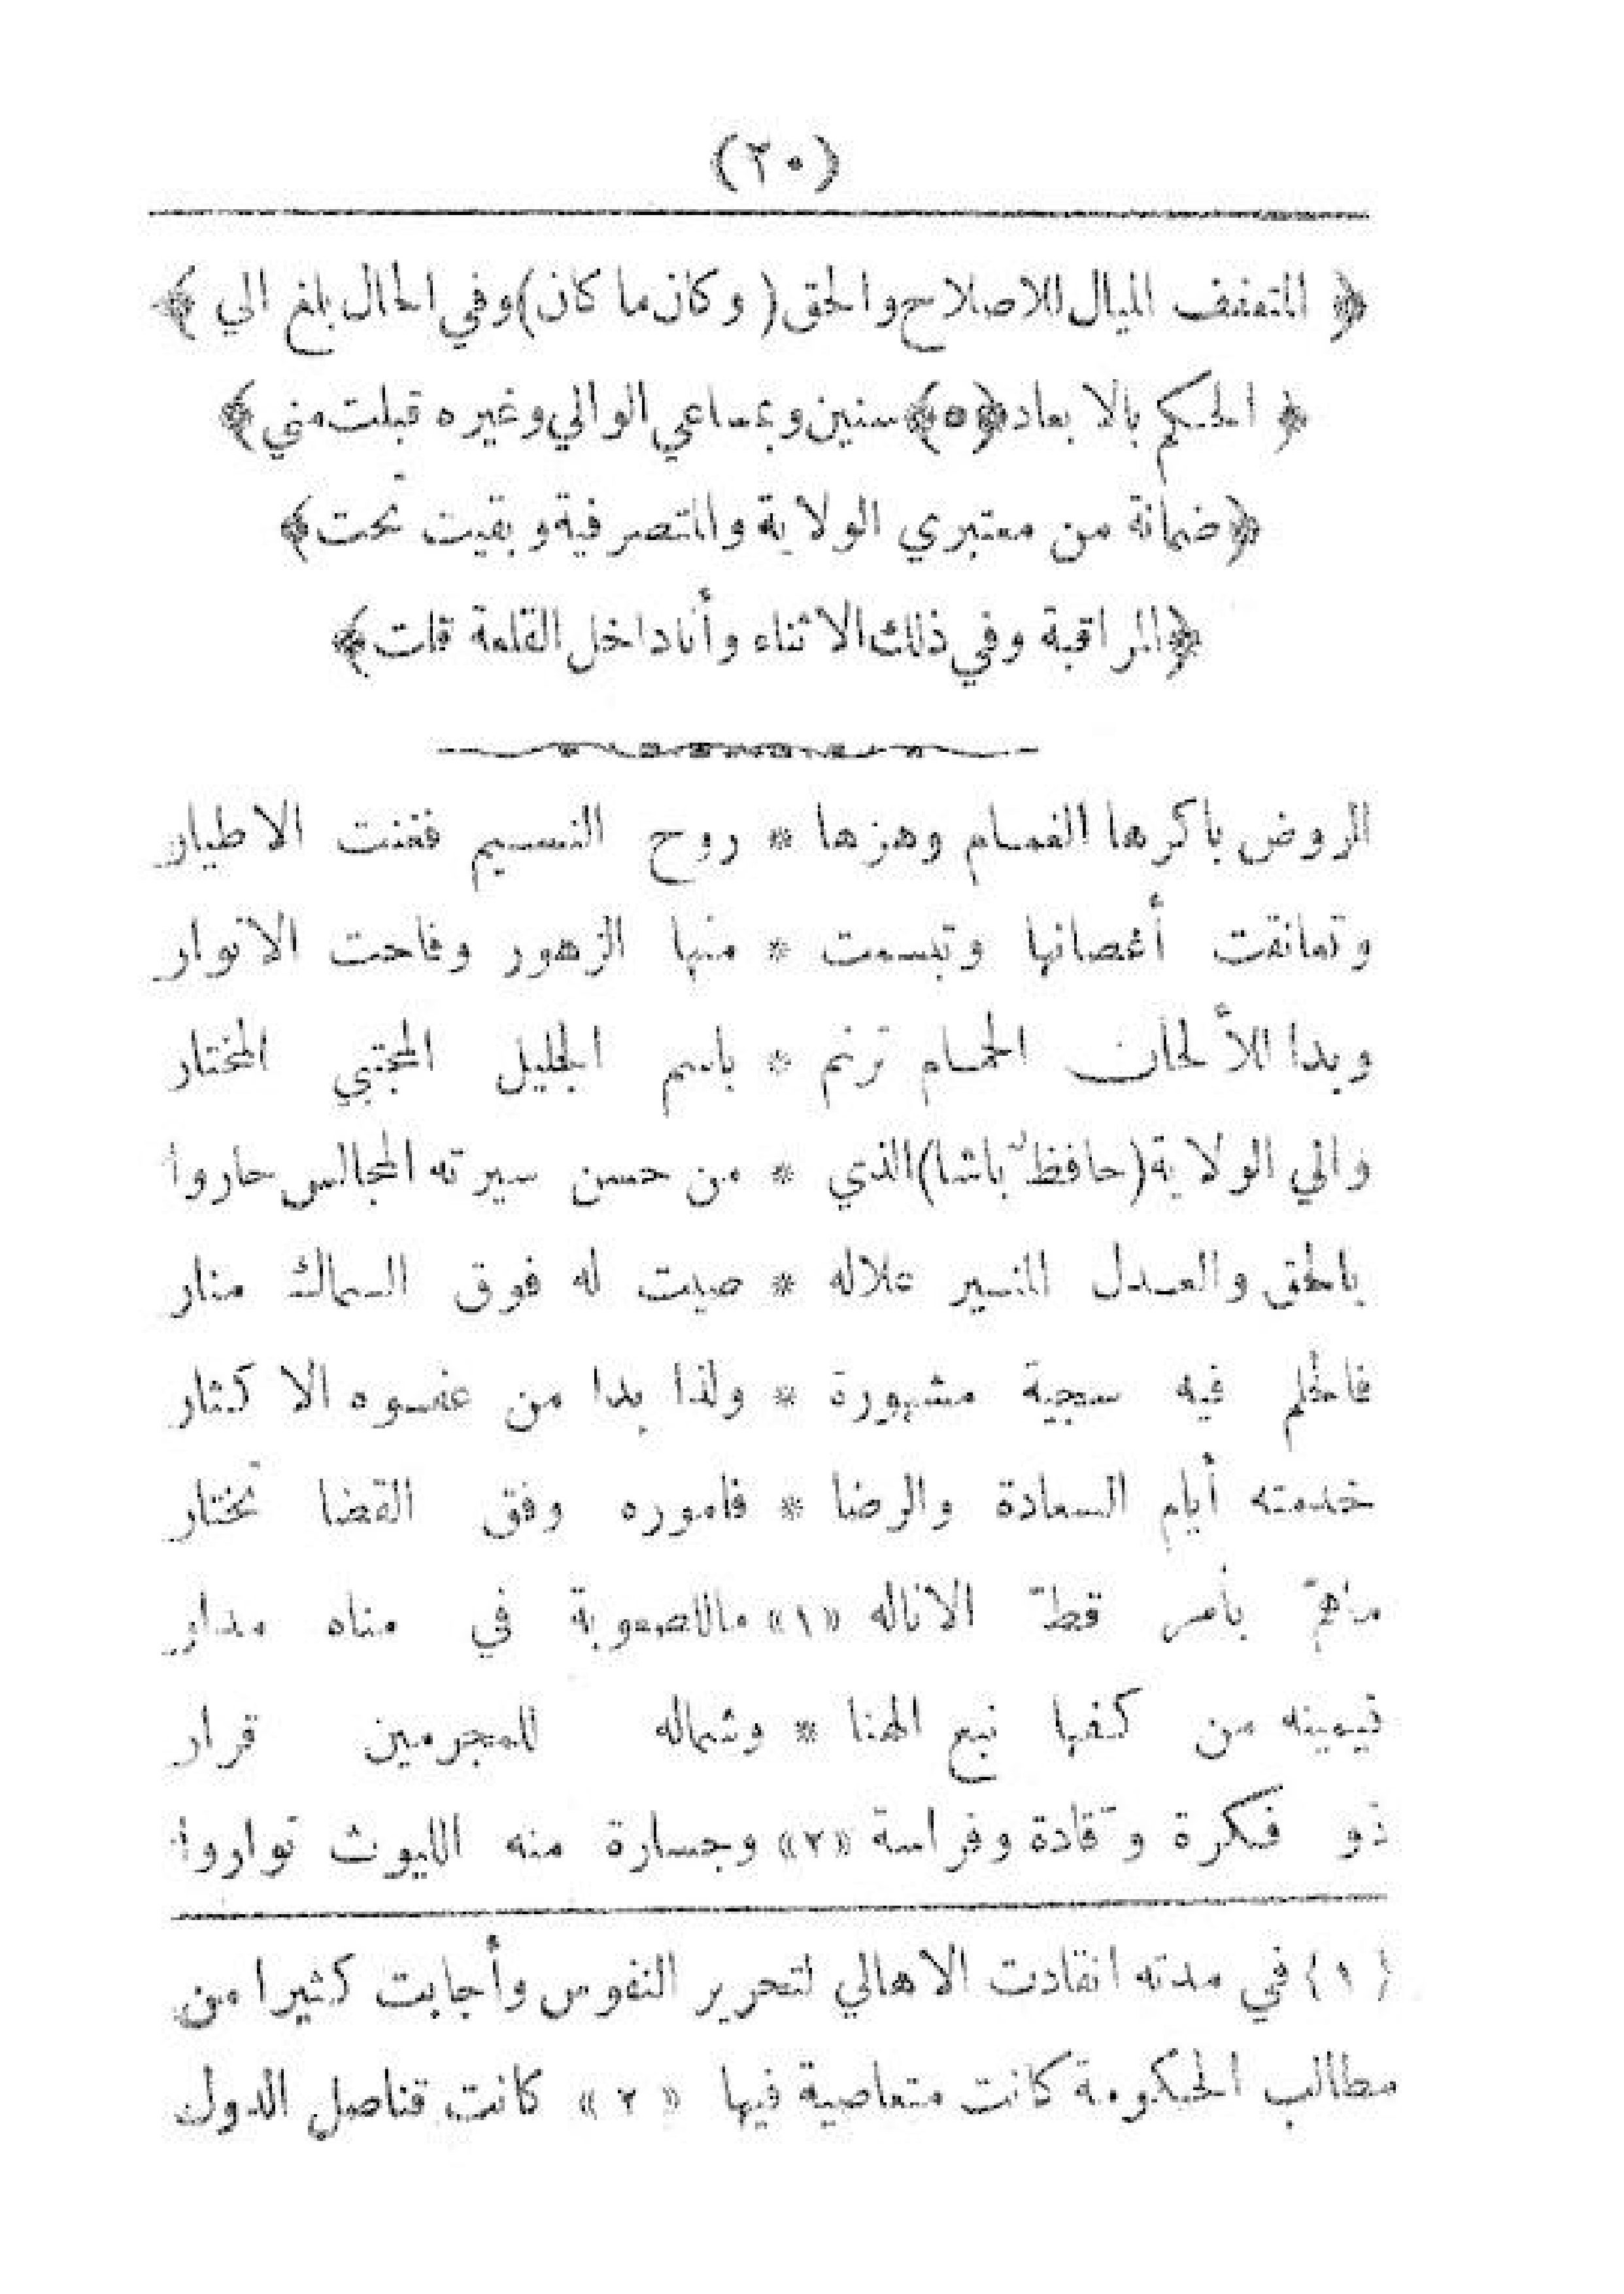 (٢٠)
﴿ المتعفف الميال للاصلاح والحق ( وكان ما كان ) وفي الحال بلغ الي ﴾
﴿ الحكم بالابعاد ﴿٥﴾ سنين وبمساعي الوالي وغيره قبلت مني ﴾
﴿ ضمانة من معتبري الولاية والمتصرفية وبقيت تحت ﴾
﴿ المراقبة وفي ذلك الاثناء وأنا داخل القلعة قلت ﴾
الروض باكرها الغمام وهزها * روح النسيم فغنت الاطيار
وتعانقت أغصانها وتبسمت * منها الزهور وفاحت الانوار
وبدا للألحان الحمام ترنم * باسم الجليل المجتبي المختار
والي الولاية (حافظ باشا) الذي * من حسن سيرته المجالس حاروا
بالحق والعدل المنير علاله * صيت له فوق السماك منار
فالحلم فيه سجية مشهورة * ولذا بدا من عفوه الاكثار
خدمته أيام السعادة والرضا * فاموره وفق القضا تختار
ماهمّ بأمر قطّ الاناله «١» ماللصعوبة في مناه مدار
فيمينه من كفها نبع الهنا * وشماله للمجرمين قرار
ذو فكرة وقّادة وفراسة «٢» وجسارة منه الليوث تواروا
(١) في مدته انقادت الاهالي لتحرير النفوس وأجابت كثيرا من
مطالب الحكومة كانت متعاصية فيها «٢» كانت قناصل الدول